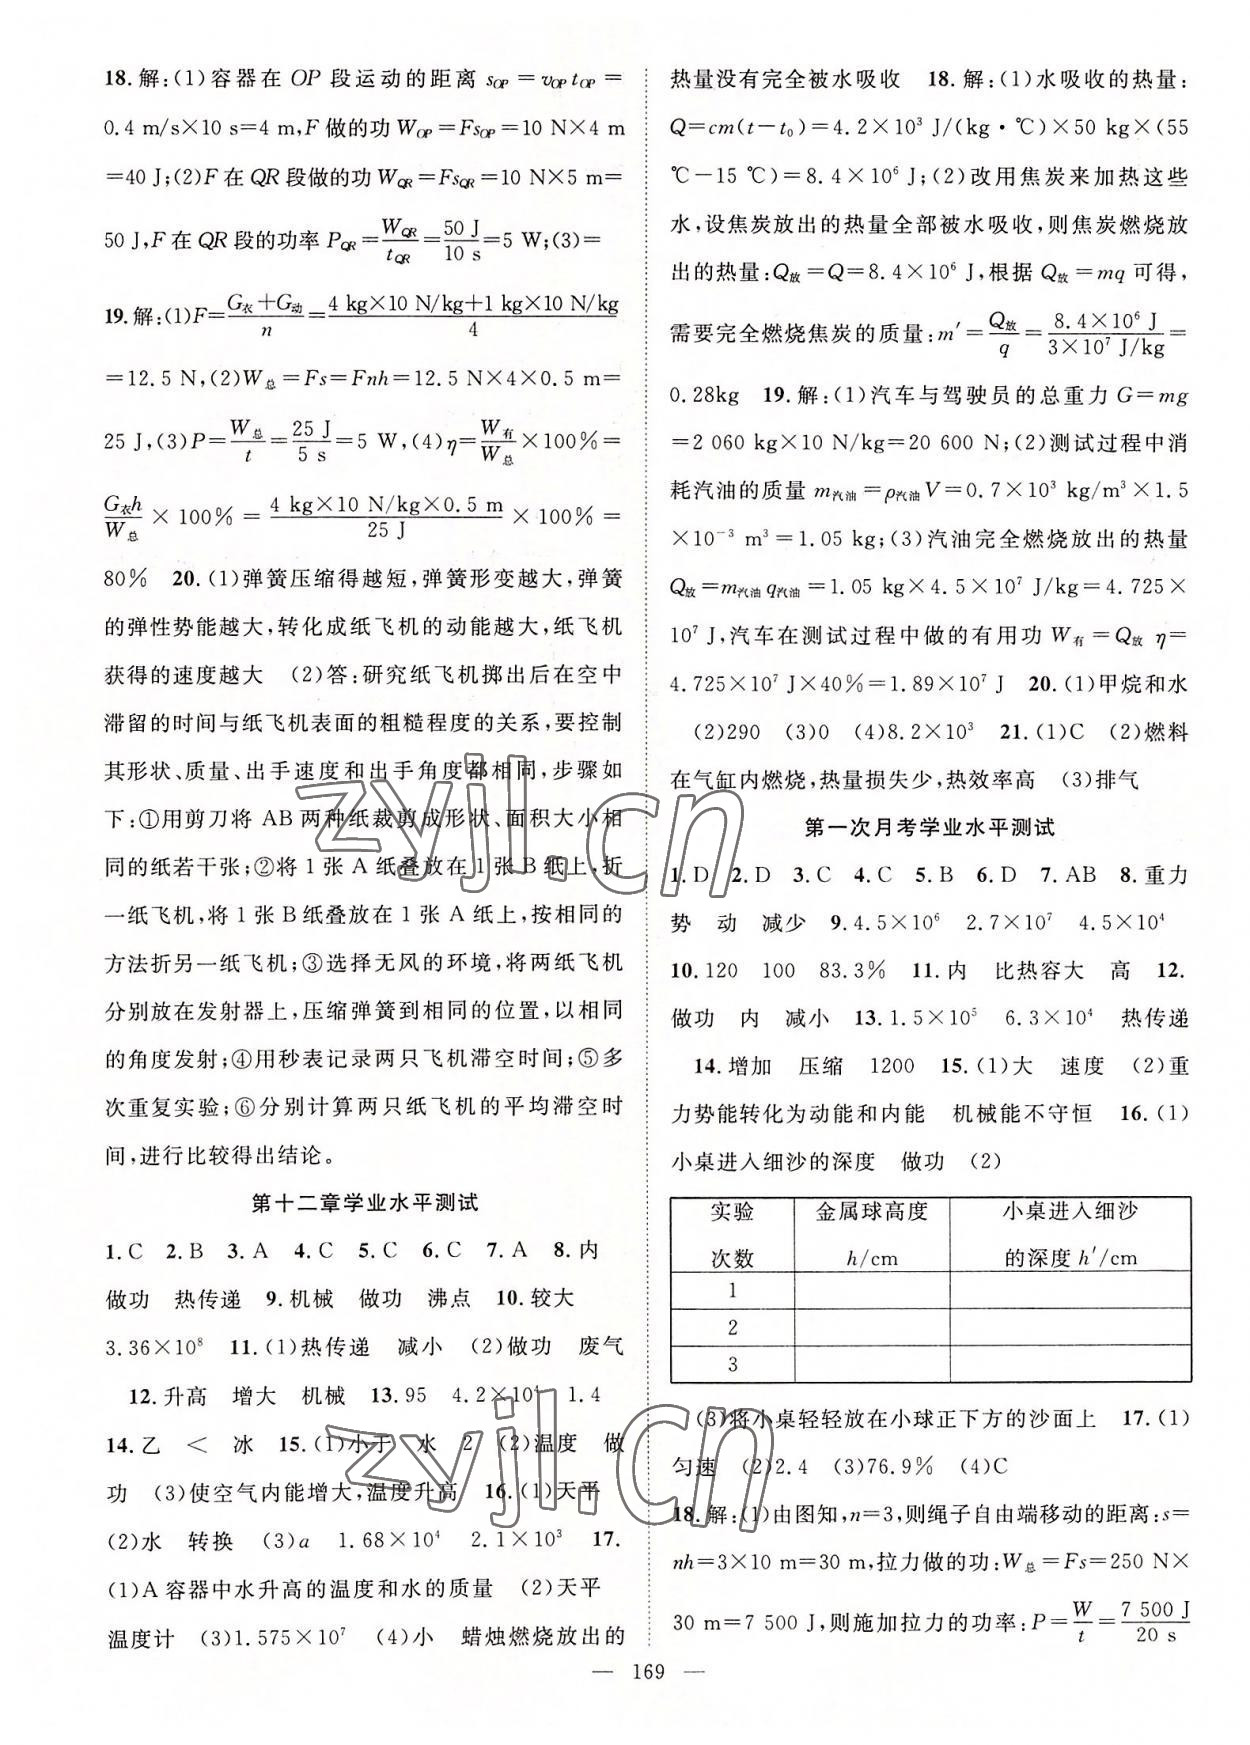 18.解:(1)容器在 OP 段运动的距离 s_OP=v_OP t_OP=
0.4 m/s×10 s=4 m,F 做的功 W_OP=Fs_OP=10 N×4 m
=40 J;(2)F 在 QR 段做的功 W_QR=Fs_QR=10 N×5 m=
50 J,F 在 QR 段的功率 P_QR=W_QR/t_QR=50 J/10 s=5 W;(3)=
19.解:(1)F=(G衣+G动)/n=(4 kg×10 N/kg+1 kg×10 N/kg)/4
=12.5 N,(2)W总=Fs=Fnh=12.5 N×4×0.5 m=
25 J,(3)P=W总/t=25 J/5 s=5 W,(4)η=W有/W总×100%=
G衣h/W总×100%=(4 kg×10 N/kg×0.5 m)/25 J×100%=
80% 20.(1)弹簧压缩得越短,弹簧形变越大,弹簧
的弹性势能越大,转化成纸飞机的动能越大,纸飞机
获得的速度越大 (2)答:研究纸飞机掷出后在空中
滞留的时间与纸飞机表面的粗糙程度的关系,要控制
其形状、质量、出手速度和出手角度都相同,步骤如
下:①用剪刀将 AB两种纸裁剪成形状、面积大小相
同的纸若干张;②将 1 张 A 纸叠放在 1 张 B纸上,折
一纸飞机,将 1 张 B纸叠放在 1 张 A 纸上,按相同的
方法折另一纸飞机;③选择无风的环境,将两纸飞机
分别放在发射器上,压缩弹簧到相同的位置,以相同
的角度发射;④用秒表记录两只飞机滞空时间;⑤多
次重复实验;⑥分别计算两只纸飞机的平均滞空时
间,进行比较得出结论。
第十二章学业水平测试
1.C 2.B 3.A 4.C 5.C 6.C 7.A 8.内
做功 热传递 9.机械 做功 沸点 10.较大
3.36×10⁸ 11.(1)热传递 减小 (2)做功 废气
12.升高 增大 机械 13.95 4.2×10⁴ 1.4
14.乙 < 冰 15.(1)小于 水 2 (2)温度 做
功 (3)使空气内能增大,温度升高 16.(1)天平
(2)水 转换 (3)a 1.68×10⁴ 2.1×10³ 17.
(1)A容器中水升高的温度和水的质量 (2)天平
温度计 (3)1.575×10⁷ (4)小 蜡烛燃烧放出的
热量没有完全被水吸收 18.解:(1)水吸收的热量:
Q=cm(t-t₀)=4.2×10³ J/(kg·℃)×50 kg×(55
℃-15 ℃)=8.4×10⁶ J;(2)改用焦炭来加热这些
水,设焦炭放出的热量全部被水吸收,则焦炭燃烧放
出的热量:Q放=Q=8.4×10⁶ J,根据 Q放=mq 可得,
需要完全燃烧焦炭的质量:m′=Q放/q=8.4×10⁶ J/3×10⁷ J/kg=
0.28kg 19.解:(1)汽车与驾驶员的总重力 G=mg
=2 060 kg×10 N/kg=20 600 N;(2)测试过程中消
耗汽油的质量 m汽油=ρ汽油V=0.7×10³ kg/m³×1.5
×10⁻³ m³=1.05 kg;(3)汽油完全燃烧放出的热量
Q放=m汽油q汽油=1.05 kg×4.5×10⁷ J/kg=4.725×
10⁷ J,汽车在测试过程中做的有用功 W有=Q放η=
4.725×10⁷ J×40%=1.89×10⁷ J 20.(1)甲烷和水
(2)290 (3)0 (4)8.2×10³ 21.(1)C (2)燃料
在气缸内燃烧,热量损失少,热效率高 (3)排气
第一次月考学业水平测试
1.D 2.D 3.C 4.C 5.B 6.D 7.AB 8.重力
势 动 减少 9.4.5×10⁶ 2.7×10⁷ 4.5×10⁴
10.120 100 83.3% 11.内 比热容大 高 12.
做功 内 减小 13.1.5×10⁵ 6.3×10⁴ 热传递
14.增加 压缩 1200 15.(1)大 速度 (2)重
力势能转化为动能和内能 机械能不守恒 16.(1)
小桌进入细沙的深度 做功 (2)
实验 金属球高度 小桌进入细沙
次数 h/cm 的深度 h′/cm
1
2
3
(3)将小桌轻轻放在小球正下方的沙面上 17.(1)
匀速 (2)2.4 (3)76.9% (4)C
18.解:(1)由图知,n=3,则绳子自由端移动的距离:s=
nh=3×10 m=30 m,拉力做的功:W总=Fs=250 N×
30 m=7 500 J,则施加拉力的功率:P=W/t=7 500 J/20 s
— 169 —
zyjl.cn
zyjl.cn